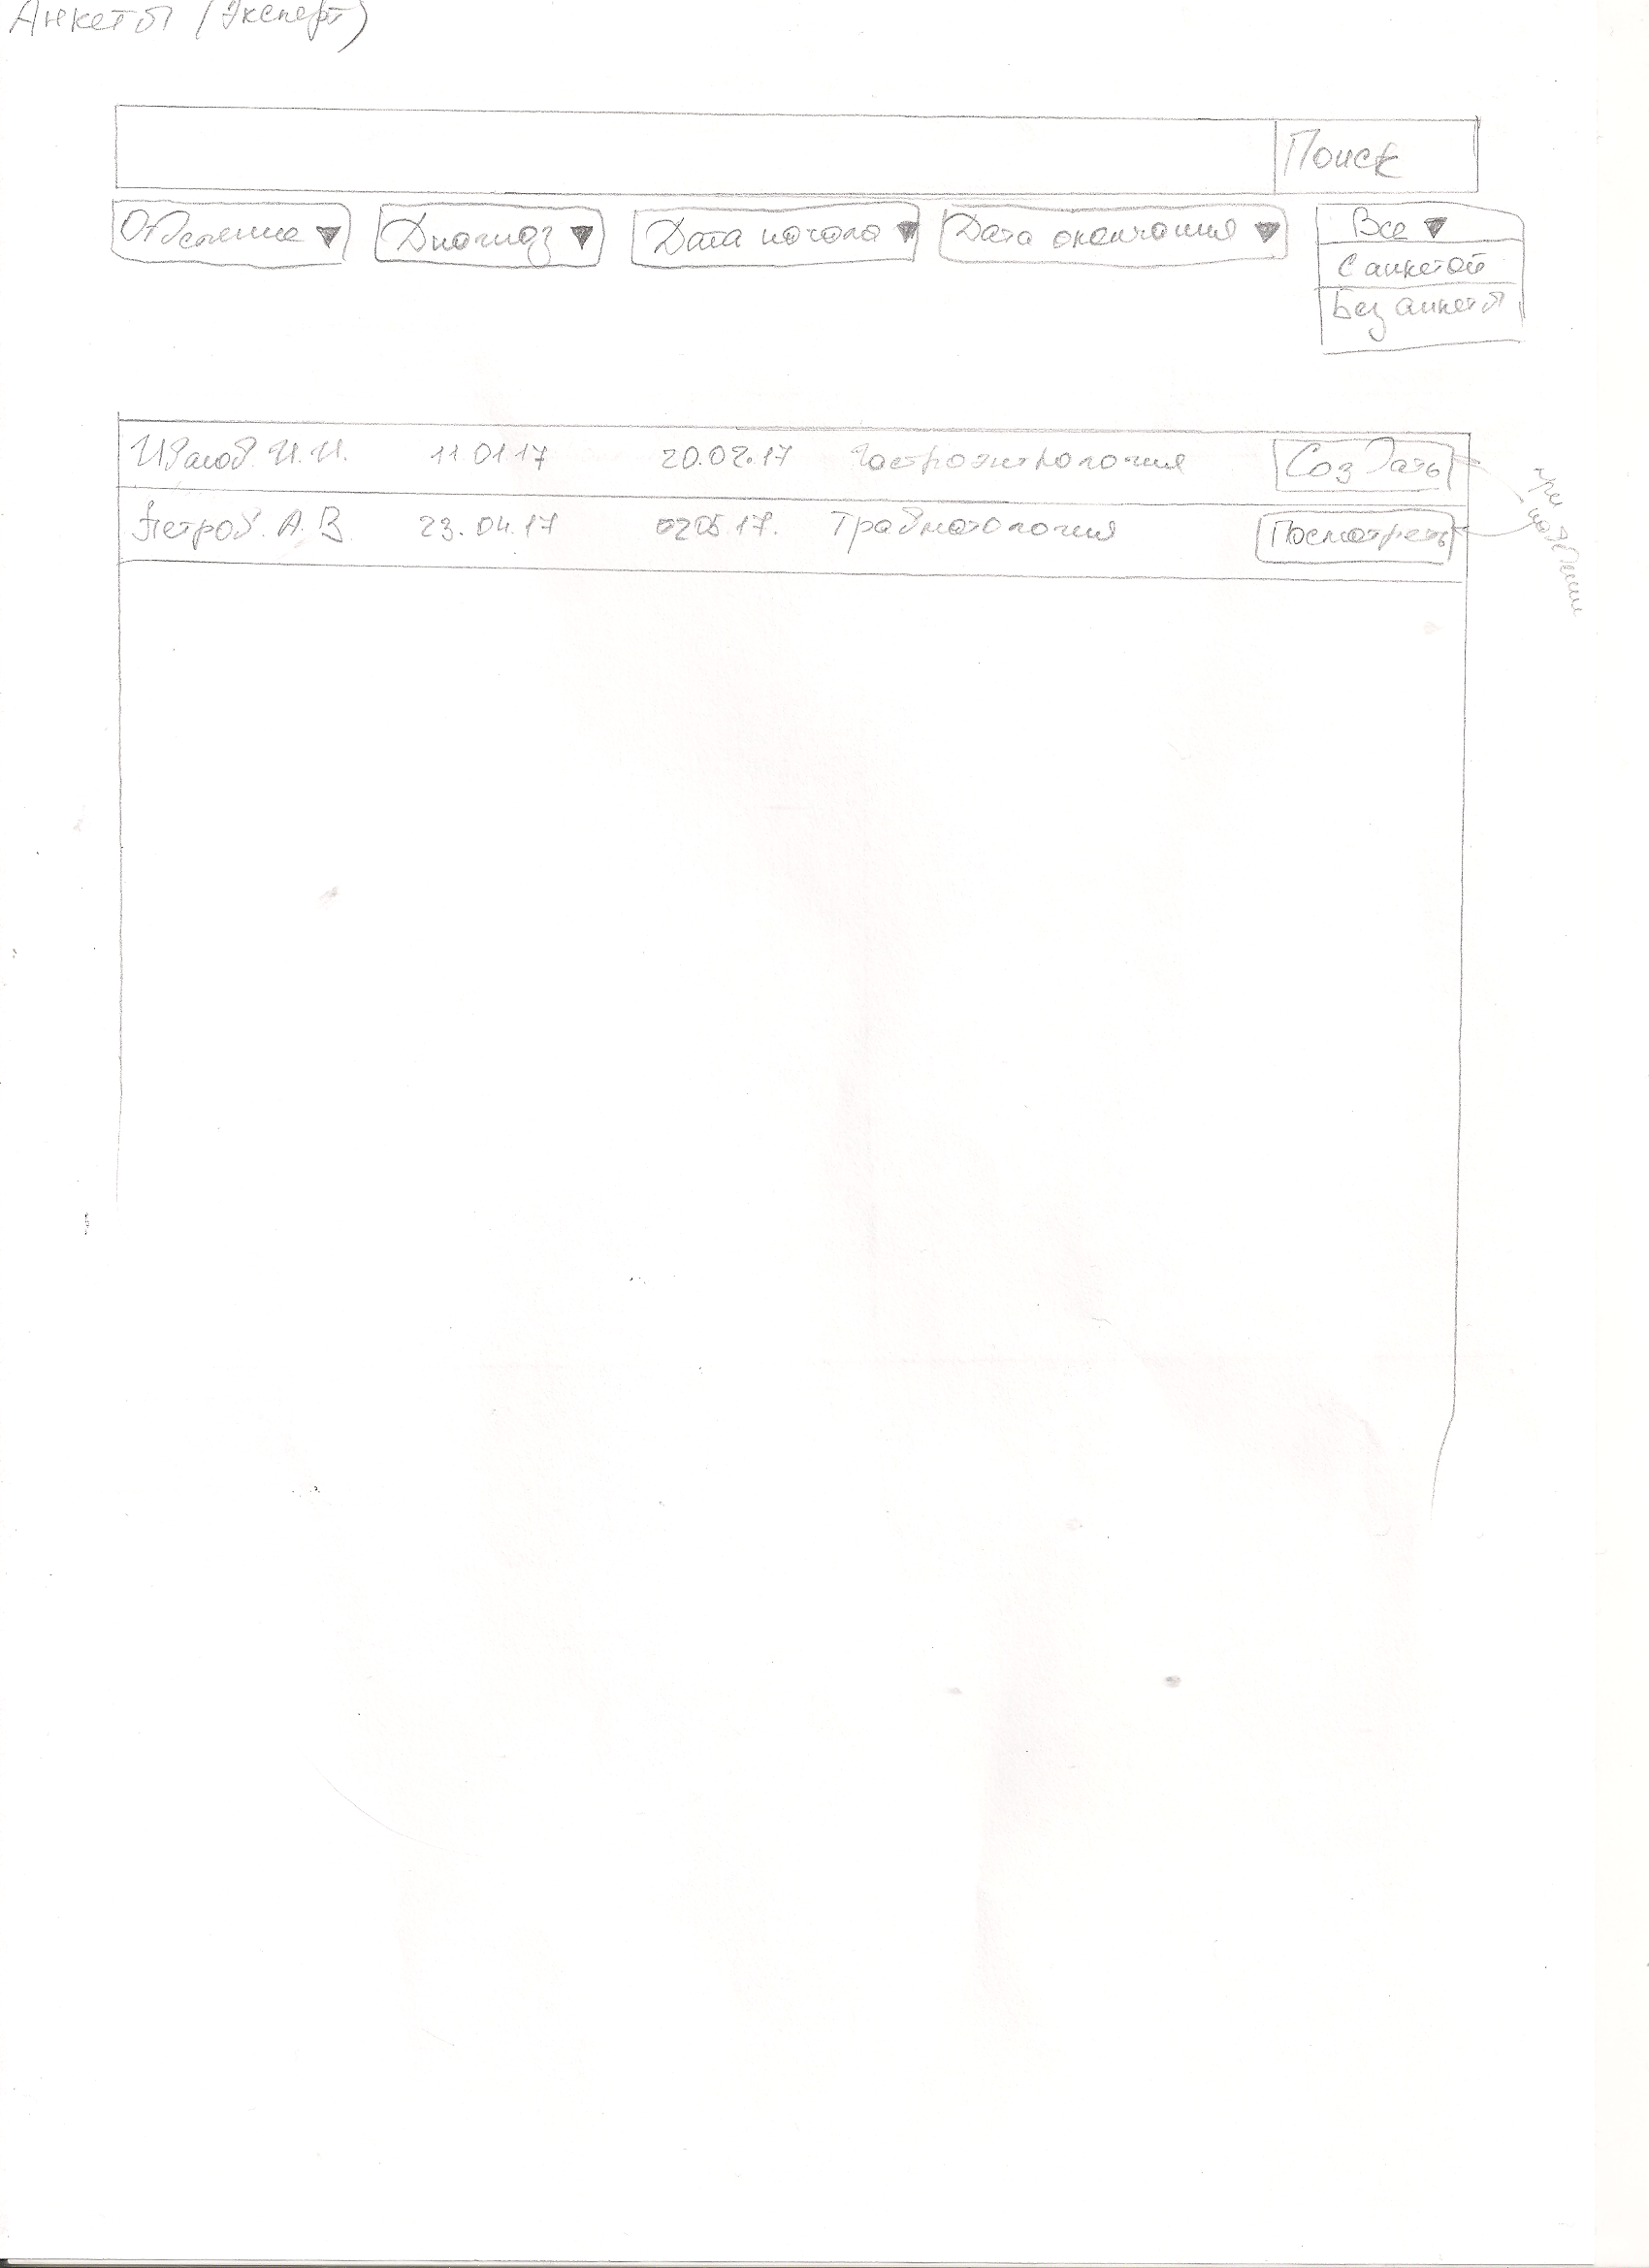 Анкеты (Эксперт)
Поиск
Отделение ▼ Диагноз ▼ Дата начала ▼ Дата окончания ▼ Все ▼
С анкетой
Без анкеты
Иванов. И.И. 11.01.17 20.02.17 Гастроэнтрология Создать
Петров. А.В. 23.04.17 02.05.17. Травматология Посмотреть
при